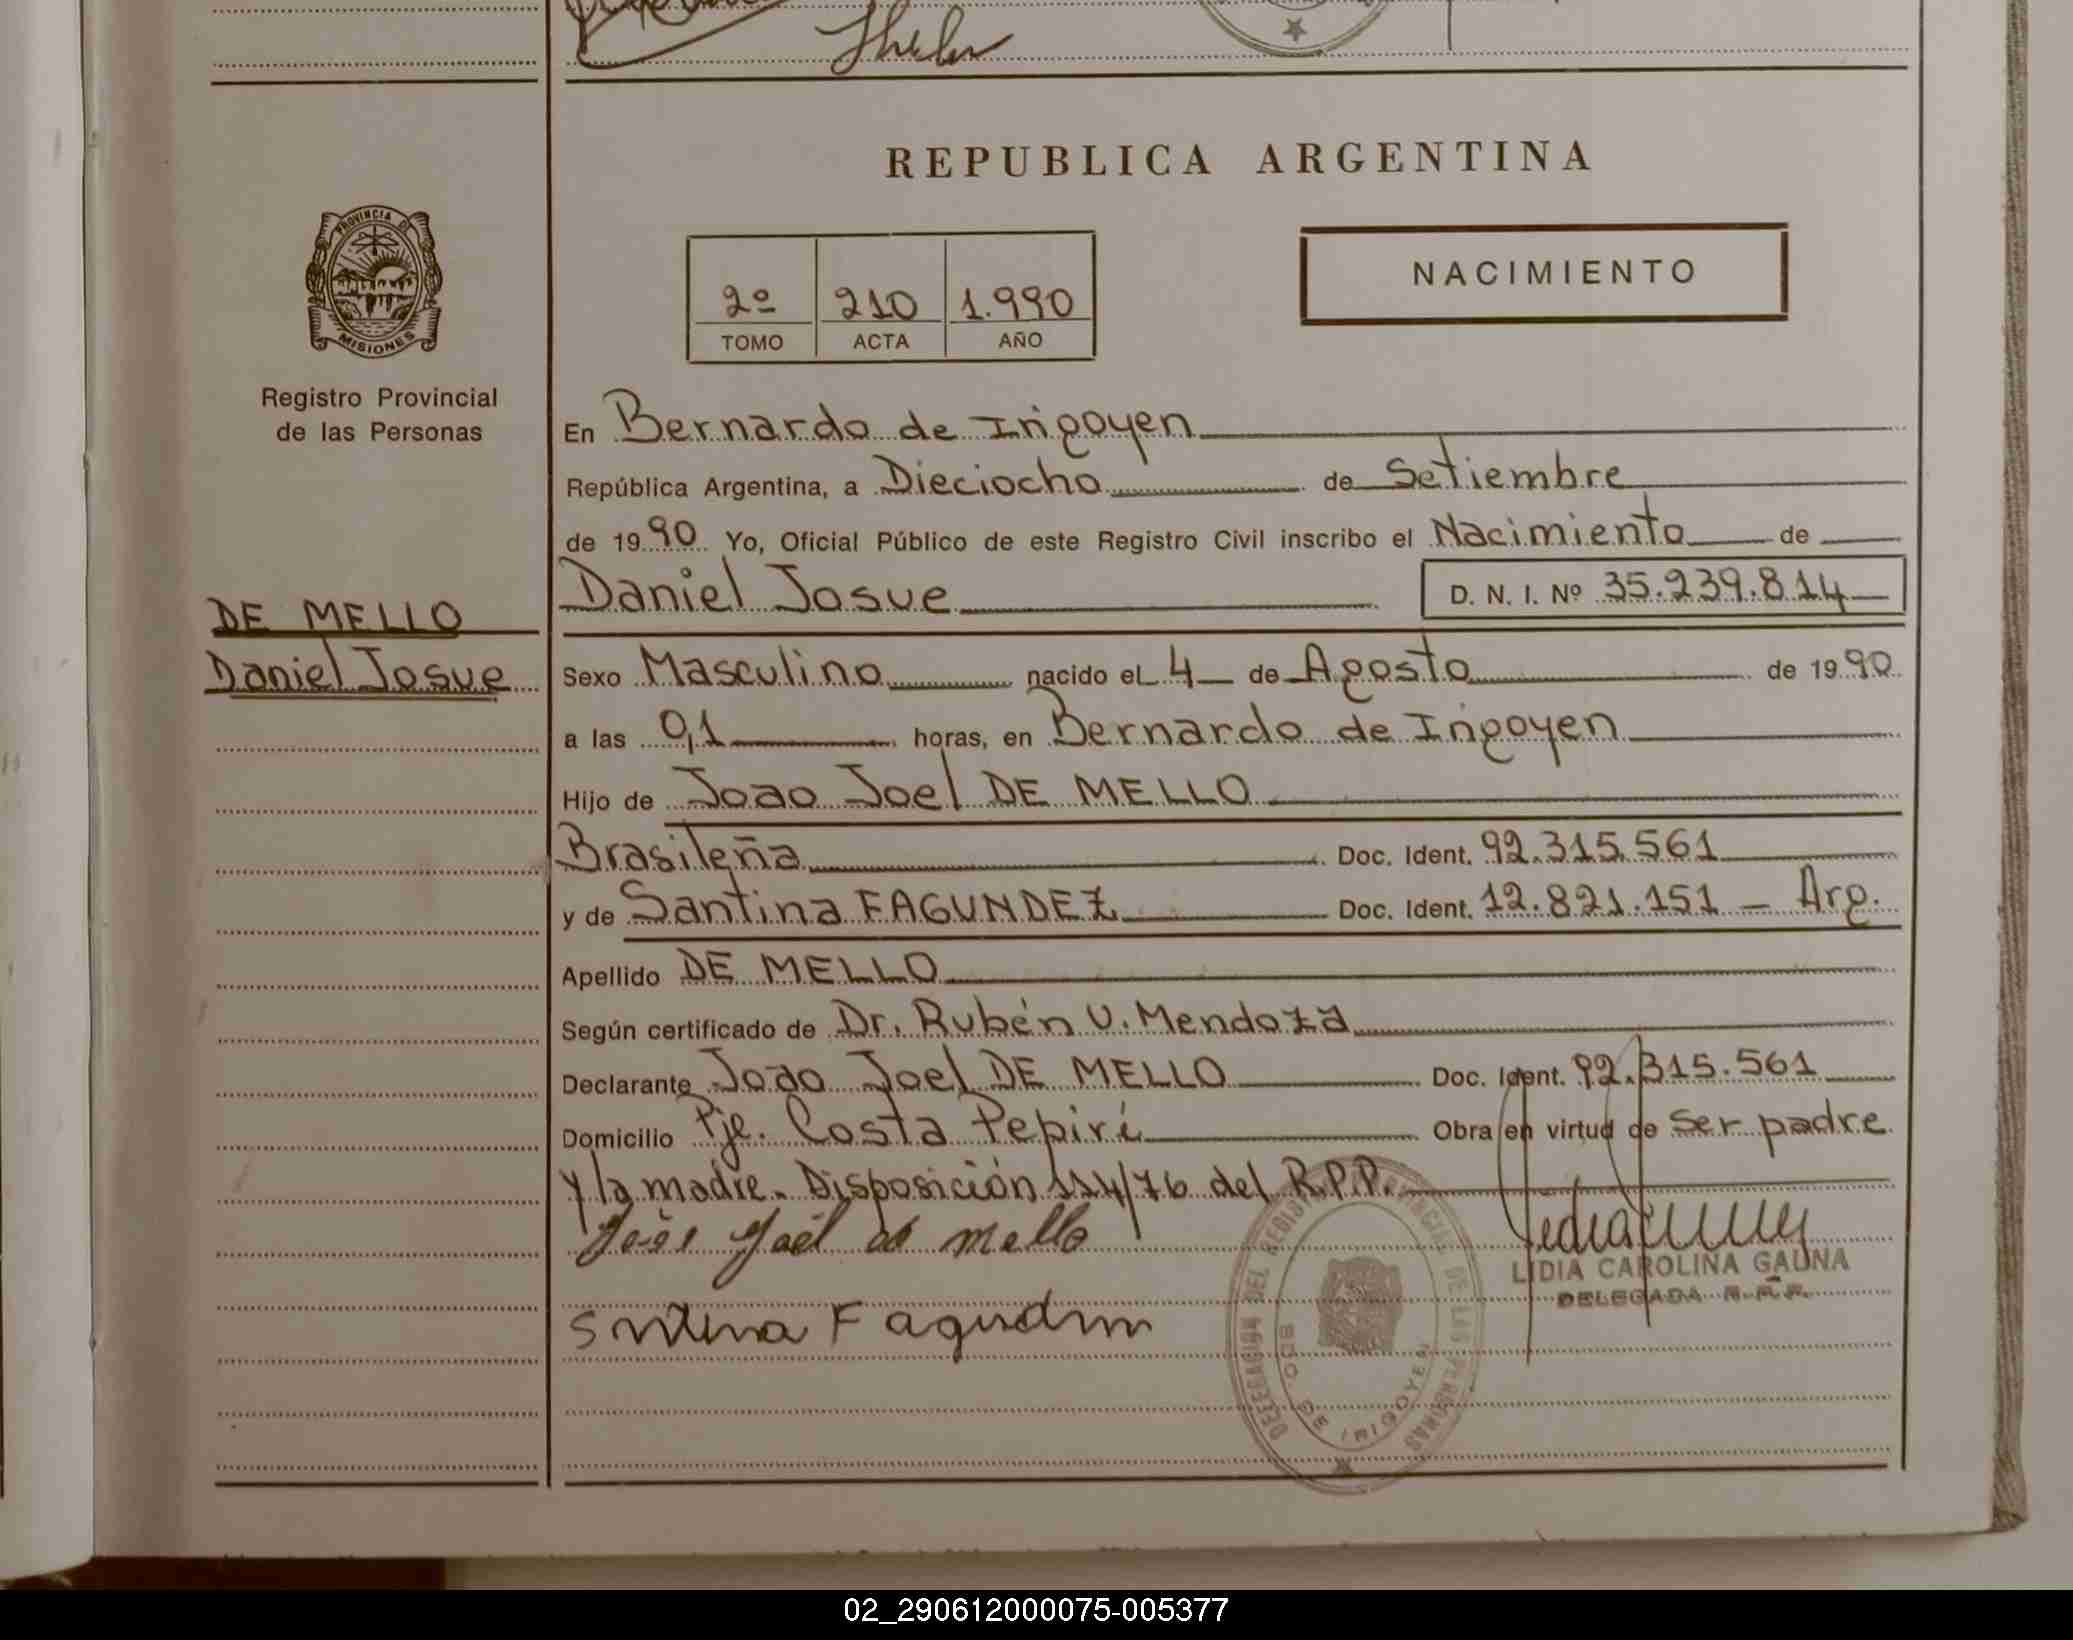 REPUBLICA ARGENTINA
PROVINCIA DE
MISIONES
Registro Provincial
de las Personas
2º 210 1.990
TOMO ACTA AÑO
NACIMIENTO
En Bernardo de Irigoyen
República Argentina, a Dieciocho de Setiembre
de 1990 Yo, Oficial Público de este Registro Civil inscribo el Nacimiento de
DE MELLO
Daniel Josue
Daniel Josue D. N. I. Nº 35.239.814
Sexo Masculino nacido el 4 de Agosto de 1990
a las 0,1 horas, en Bernardo de Irigoyen
Hijo de Joao Joel DE MELLO
Brasileña Doc. Ident. 92.315.561
y de Santina FAGUNDEZ Doc. Ident. 12.821.151 - Arg.
Apellido DE MELLO
Según certificado de Dr. Rubén V. Mendoza
Declarante Joao Joel DE MELLO Doc. Ident. 92.315.561
Domicilio Pje. Costa Pepirí Obra en virtud de ser padre
y la madre. Disposición 114/76 del R.P.P.
Joel de Mello
LIDIA CAROLINA GAUNA
DELEGADA R.P.P.
DELEGACION DEL REGISTRO PROVINCIAL DE LAS PERSONAS
BDO. DE IRIGOYEN
02_290612000075-005377